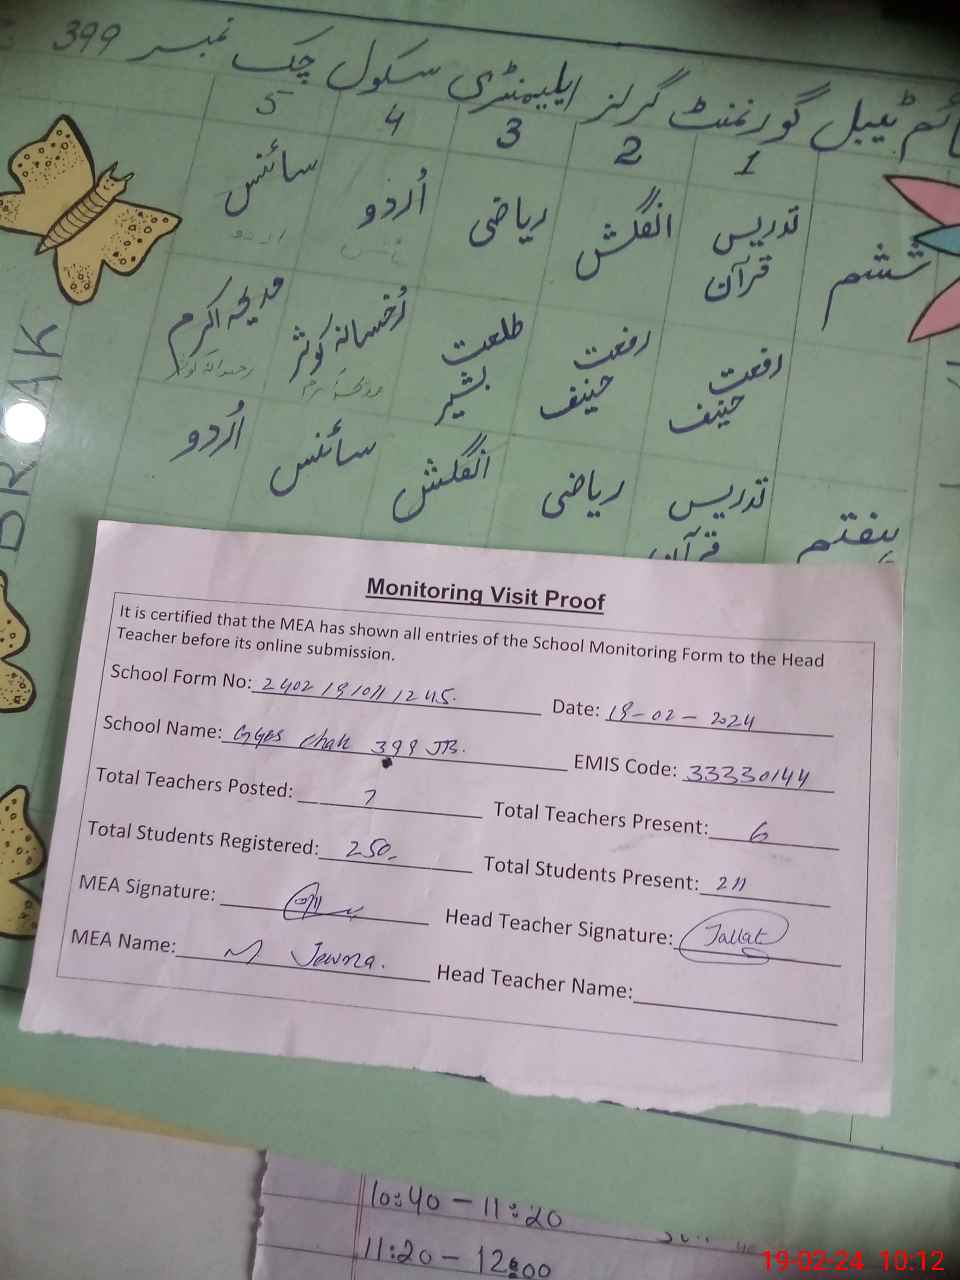 ٹائم ٹیبل گورنمنٹ گرلز ایلیمنٹری سکول چک نمبر 399
1 2 3 4 5
ششم
تدریس قرآن انگلش ریاضی اُردو سائنس
رفعت حنیف رفعت حنیف طلعت بشیر رُخسانہ کوثر مدیحہ اکرم
ہفتم
تدریس قرآن ریاضی انگلش سائنس اُردو
BREAK
Monitoring Visit Proof
It is certified that the MEA has shown all entries of the School Monitoring Form to the Head
Teacher before its online submission.
School Form No: Date: 19-02-2024
School Name: GGES Chak 399 JB. EMIS Code: 33330144
Total Teachers Posted: 7 Total Teachers Present: 6
Total Students Registered: 250 Total Students Present: 211
MEA Signature: Head Teacher Signature: Tallat
MEA Name: M Head Teacher Name:
10:40 - 11:20
11:20 - 12:00
19-02-24 10:12